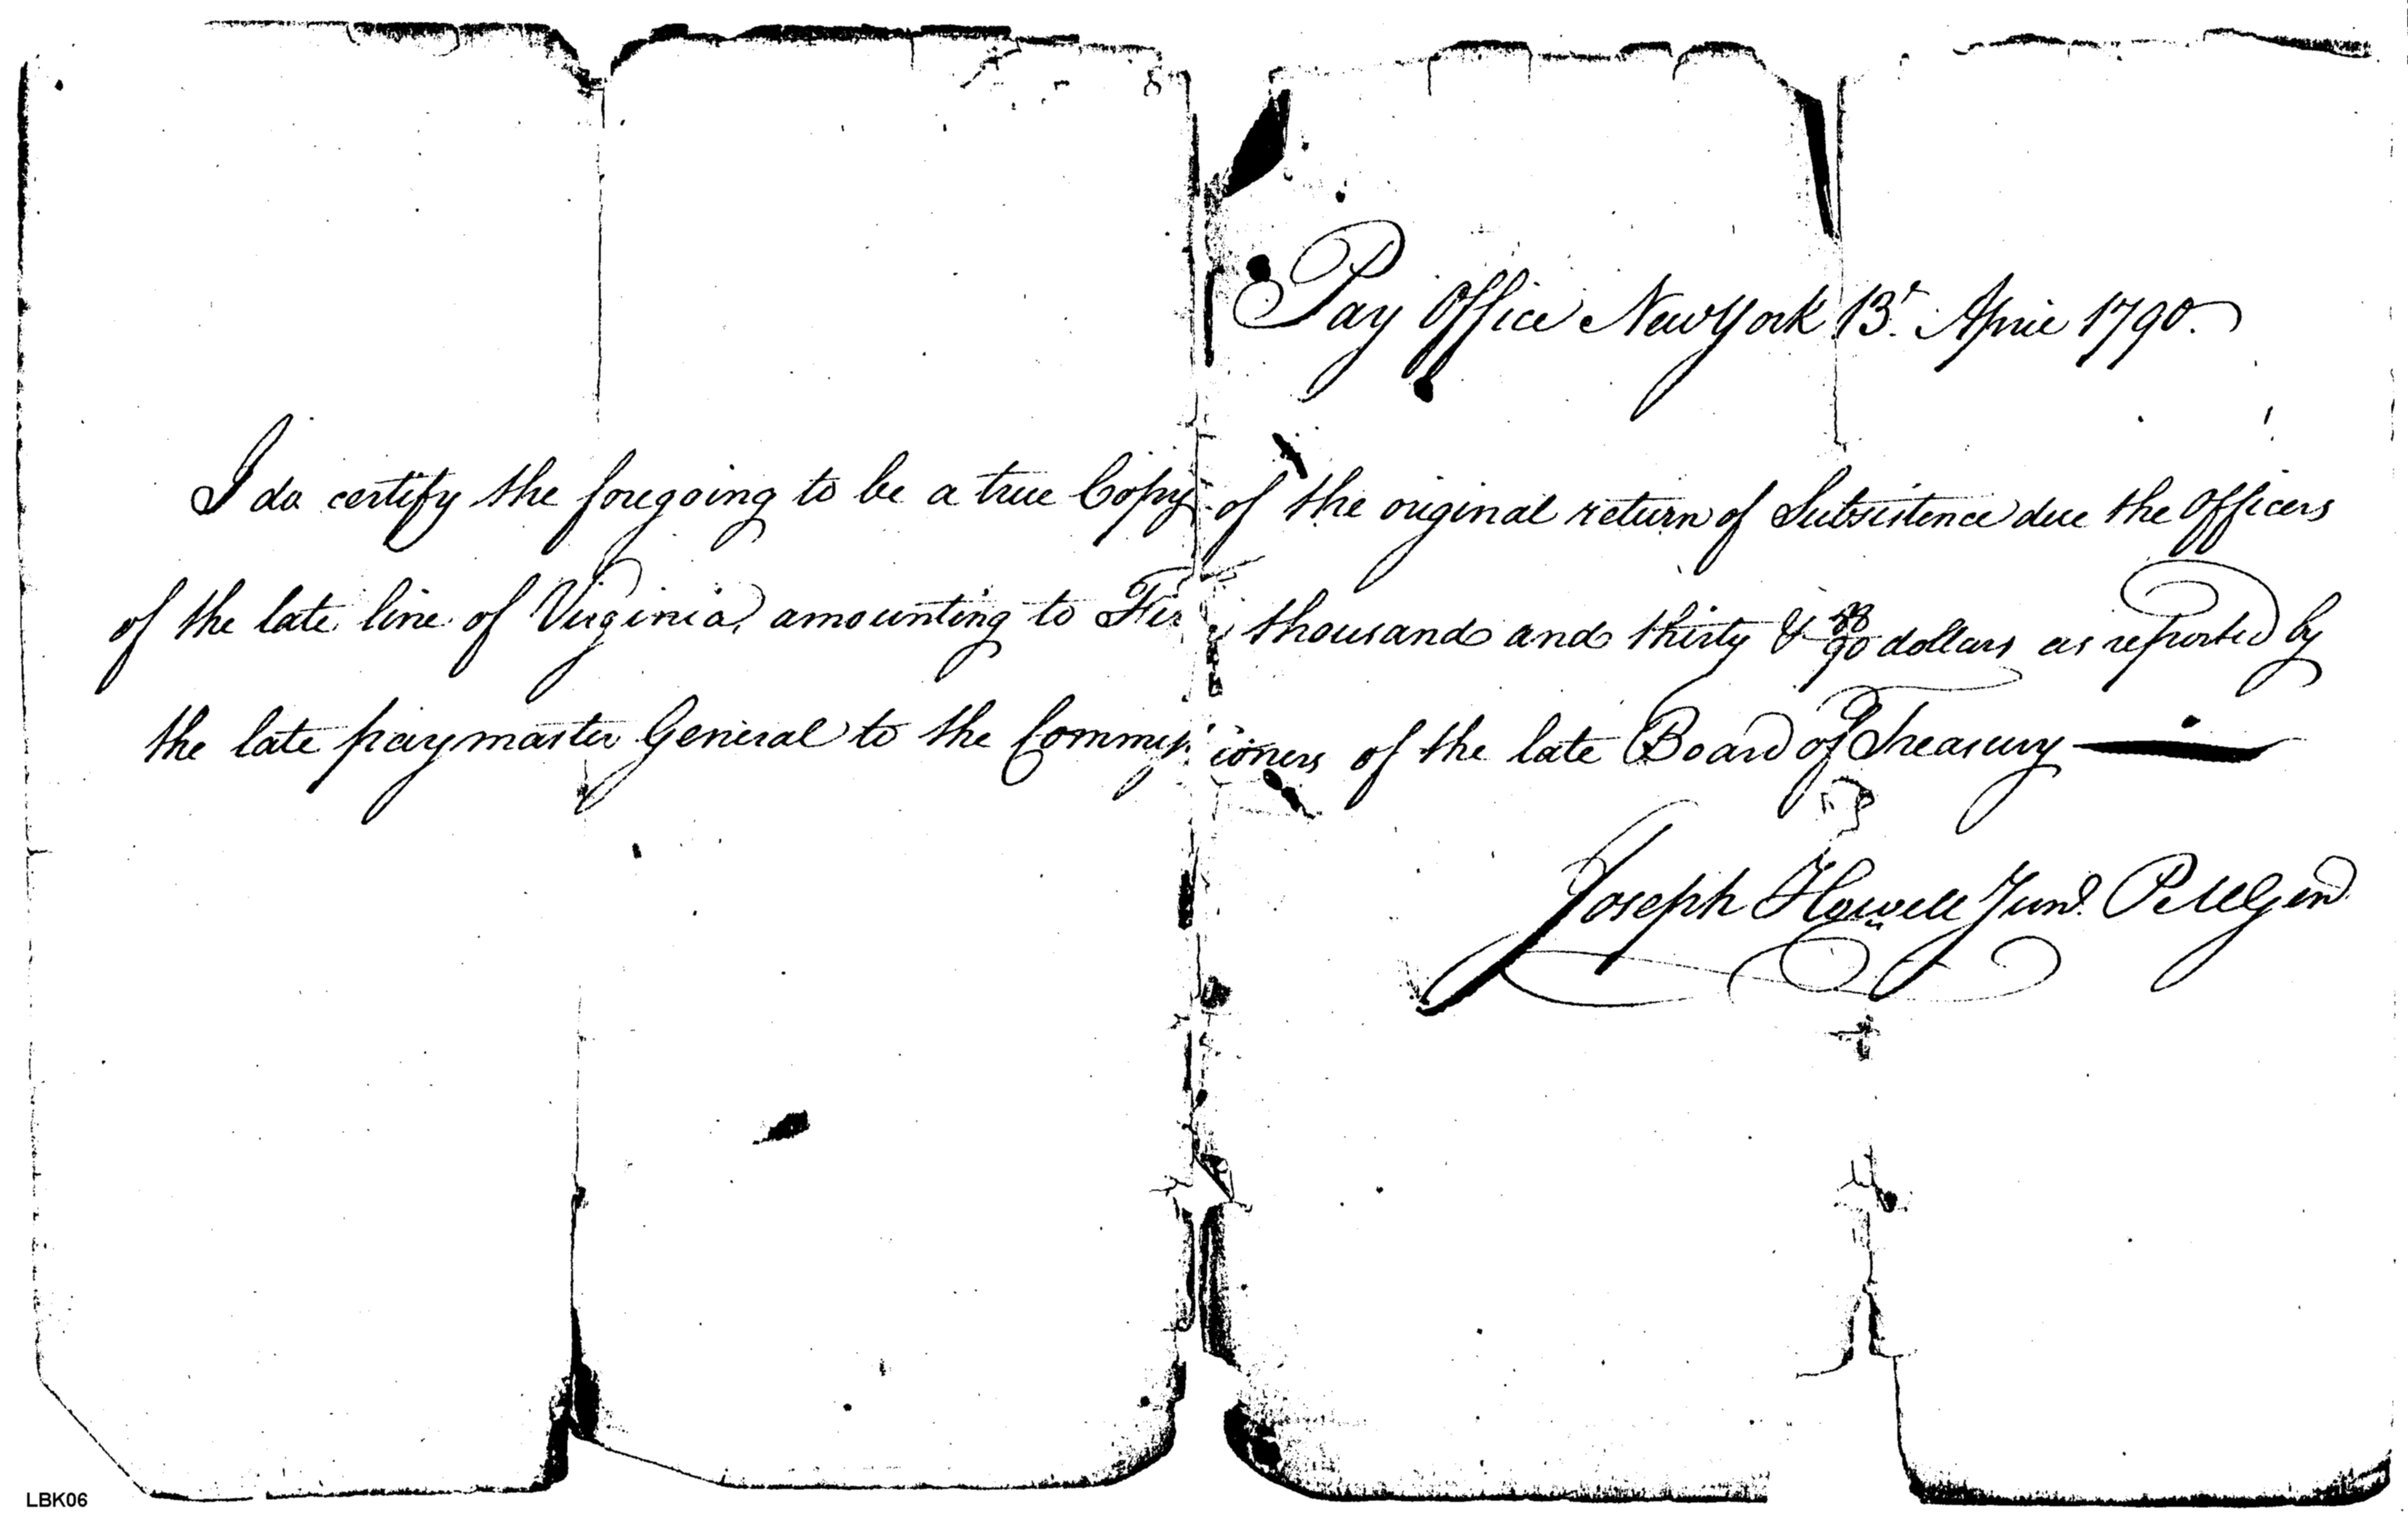 Pay Office New York 13th April 1790.
I do certify the foregoing to be a true Copy of the original return of Subsistence due the Officers
of the late line of Virginia, amounting to thousand and thirty & /90 dollars as reported by
the late paymaster General to the Commissioners of the late Board of Treasury
Joseph Howell Junr. P.M Genl.
LBK06